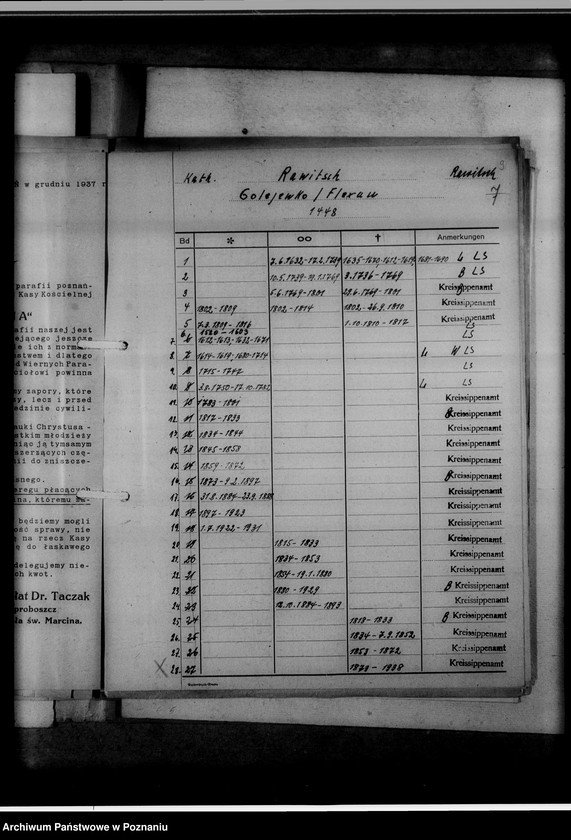 w grudniu 1937 r
parafii poznań-
Kasy Kościelnej
A"
afii naszej jest
ejącego jeszcze
e ich z norma
stwem i dlatego
d Wiernych Para-
ciołowi powinna
y zapory, które
y, lecz i przed
edzinie cywili-
auki Chrystusa -
atkim młodzieży
niąc ją tymsamym
szerzących
ii do zniszcze-
snego.
eregu płacących
na, któremu
będziemy mogli
ość sprawy, nie
ę na rzecz Kasy
ę do łaskawego
delegujemy nie-
ch kwot.
łat Dr. Taczak
proboszcz
ła św. Marcina.
9
Kath. Rawitsch Rawitsch
Golejewko / Flexau 7
1448
Bd * ∞ † Anmerkungen
1 7.6.1632-17.2.1739 1635-1670.1612-1619, 1681-1690 L LS
2 10.5.1739- 3.1736-1769 B LS
3 5.6.1769-1801 28.6.1769-1801 Kreissippenamt
4 1802-1809 1802-1814 1802-26.9.1810 Kreissippenamt
5 7.3.1809-1816 1.10.1810-1817 Kreissippenamt
6. 1520-1603 LS
7. 1612-1613-1632-1671 LS
8. 7 1614-1619; 1680-1714 L W LS
9. 8 1715-1747 LS
10. 3.8.1750-17.10.1782 L LS
11. 1783-1801 Kreissippenamt
12. 1817-1833 B Kreissippenamt
13. 1834-1844 Kreissippenamt
14. 13 1845-1858 Kreissippenamt
15. 14 1859-1872 Kreissippenamt
16. 15 1873-9.2.1897 B Kreissippenamt
17. 16 31.8.1884-23.9.1888 Kreissippenamt
18. 17 1897-1923 Kreissippenamt
19. 18 1.7.1922-1931 Kreissippenamt
20. 19 1815-1833 Kreissippenamt
21. 20 1834-1853 Kreissippenamt
22. 21 1854-19.1.1880 Kreissippenamt
23. 22 1880-1929 B Kreissippenamt
24. 23 12.10.1884-1893 Kreissippenamt
25. 24 1818-1833 B Kreissippenamt
26. 25 1834-7.9.1852 Kreissippenamt
27. 26 1853-1872 Kreissippenamt
28. 27 1873-1938 Kreissippenamt
Archiwum Państwowe w Poznaniu